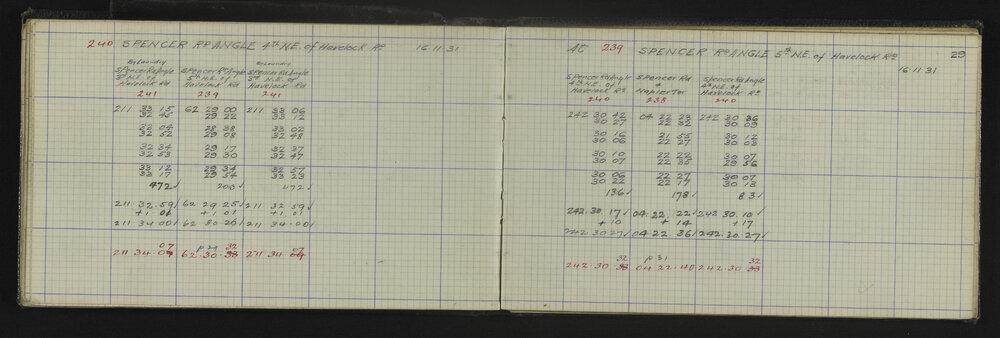 240 SPENCER Rᴰ ANGLE 4TH N.E. of Havelock Rᴰ 16.11.31
By Laundry By Laundry
Spencer Rd Angle Spencer Rd Angle Spencer Rd Angle
5th N.E. of 5th N.E. of 5th N.E. of
Havelock Rd Havelock Rd Havelock Rd
241 239 241
211 33 15 62 29 00 211 33 06
32 45 29 22 33 12
33 04 28 38 33 02
32 52 29 08 32 48
32 34 29 17 32 37
32 53 29 30 32 47
33 12 29 34 32 57
33 17 29 54 33 23
472✓ 203✓ 472✓
211 32.59✓ 62 29 25✓ 211 32.59✓
+1 01 +1 01 +1 01
211 34 00✓ 62 30 26✓ 211 34.00✓
07 p 29 32 07
211 34.09 62.30.38 211 34 09
AT 239 SPENCER Rᴰ ANGLE 5th N.E. of Havelock Rᴰ 29
16.11.31
Spencer Rd Angle Spencer Rd Spencer Rd Angle
4th N.E. of & 4th N.E. of
Havelock Rd Napier Ter Havelock Rd
240 238 240
242 30 42 04 22 23 242 30 36
30 27 22 32 30 09
30 16 21 55 30 12
30 06 22 27 30 03
30 10 22 22 30 07
30 07 22 35 29 56
30 06 22 27 30 07
30 22 22 17 30 13
136✓ 178✓ 83✓
242.30.17✓ 04.22.22✓ 242 30.10✓
+10 +14 +17
242 30 27✓ 04 22 36✓ 242.30.27✓
32 p 31 32
242.30.38 04.22.40 242.30.38